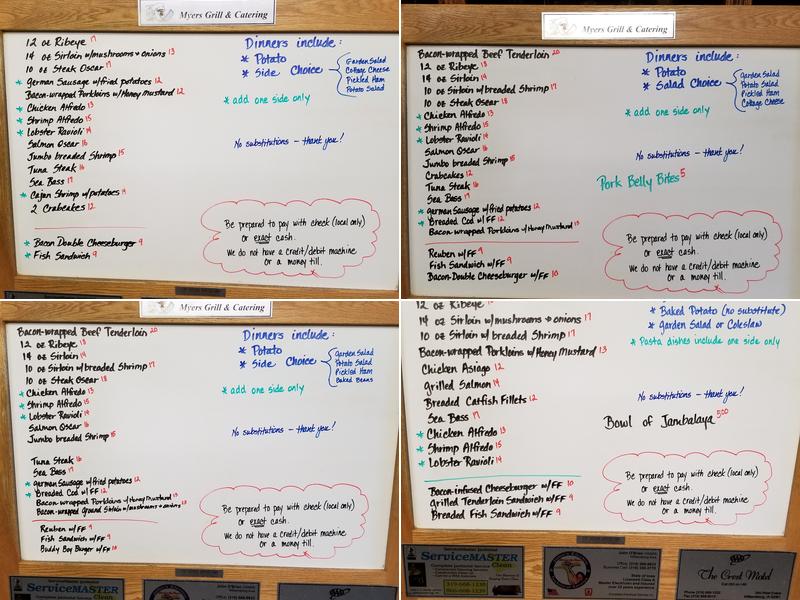 Myers Grill & Catering
12 oz Ribeye 17
14 oz Sirloin w/mushrooms + onions 13
10 oz Steak Oscar 17
* German Sausage w/fried potatoes 12
Bacon-wrapped Porkloins w/Honey Mustard 12
* Chicken Alfredo 13
* Shrimp Alfredo 15
* Lobster Ravioli 14
Salmon Oscar 16
Jumbo breaded Shrimp 15
Tuna Steak 16
Sea Bass 17
* Cajan Shrimp w/potatoes 14
2 Crabcakes 12
* Bacon Double Cheeseburger 9
* Fish Sandwich 9
Dinners include:
* Potato
* Side Choice
Garden Salad
Cottage Cheese
Pickled Ham
Potato Salad
* add one side only
No substitutions – thank you!
Be prepared to pay with check (local only)
or exact cash.
We do not have a credit/debit machine
or a money till.
Myers Grill & Catering
Bacon-wrapped Beef Tenderloin 20
12 oz Ribeye 18
14 oz Sirloin 14
10 oz Sirloin w/breaded Shrimp 17
10 oz Steak Oscar 18
* Chicken Alfredo 13
* Shrimp Alfredo 15
* Lobster Ravioli 14
Salmon Oscar 16
Jumbo breaded Shrimp 15
Crabcakes 12
Tuna Steak 16
Sea Bass 17
* German Sausage w/fried potatoes 12
* Breaded Cod w/FF 12
Bacon wrapped Porkloins w/Honey Mustard 13
Reuben w/FF 9
Fish Sandwich w/FF 9
Bacon-Double Cheeseburger w/FF 10
Dinners include:
* Potato
* Salad Choice
Garden Salad
Potato Salad
Pickled Ham
Cottage Cheese
* add one side only
No substitutions – thank you!
Pork Belly Bites 5
Be prepared to pay with check (local only)
or exact cash.
We do not have a credit/debit machine
or a money till.
Myers Grill & Catering
Bacon-wrapped Beef Tenderloin 20
12 oz Ribeye 18
14 oz Sirloin 14
10 oz Sirloin w/breaded Shrimp 17
10 oz Steak Oscar 18
* Chicken Alfredo 13
* Shrimp Alfredo 15
* Lobster Ravioli 14
Salmon Oscar 16
Jumbo breaded Shrimp 15
Tuna Steak 16
Sea Bass 17
* German Sausage w/fried potatoes 12
* Breaded Cod w/FF 12
Bacon-wrapped Porkloins w/Honey Mustard 13
Bacon-wrapped Ground Sirloin w/mushrooms + onions
Reuben w/FF 9
Fish Sandwich w/FF 9
Buddy Boy Burger w/FF 10
Dinners include:
* Potato
* Side Choice
Garden Salad
Potato Salad
Pickled Ham
Baked Beans
* add one side only
No substitutions – thank you!
Be prepared to pay with check (local only)
or exact cash.
We do not have a credit/debit machine
or a money till.
ServiceMASTER
Clean
12 oz Ribeye
14 oz Sirloin w/mushrooms + onions 17
10 oz Sirloin w/breaded Shrimp 17
Bacon-wrapped Porkloins w/Honey Mustard 13
Chicken Asiago 12
Grilled Salmon 14
Breaded Catfish Fillets 12
Sea Bass 17
* Chicken Alfredo 13
* Shrimp Alfredo 15
* Lobster Ravioli 14
Bacon-infused Cheeseburger w/FF 10
Grilled Tenderloin Sandwich w/FF 9
Breaded Fish Sandwich w/FF 9
* Baked Potato (no substitute)
* Garden Salad or Coleslaw
* Pasta dishes include one side only
No substitutions – thank you!
Bowl of Jambalaya 5.00
Be prepared to pay with check (local only)
or exact cash.
We do not have a credit/debit machine
or a money till.
ServiceMASTER
Clean
The Crest Motel